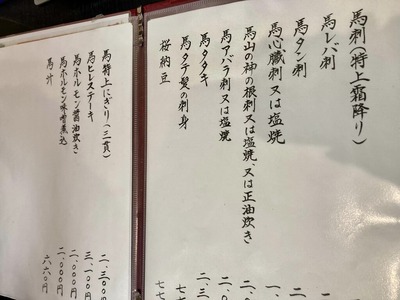 馬刺(特上霜降り)
馬レバ刺
馬タン刺
馬心臓刺又は塩焼
馬山の神の根刺又は塩焼、又は正油炊き
馬アバラ刺又は塩焼
馬タタキ
馬タテ髪の刺身
桜納豆
馬特上にぎり(三貫)
馬ヒレステーキ
馬ホルモン醤油炊き
馬ホルモン味噌煮込
馬汁
二、三〇〇円
三、一〇〇円
二、〇〇〇円
二、〇〇〇円
六六〇円